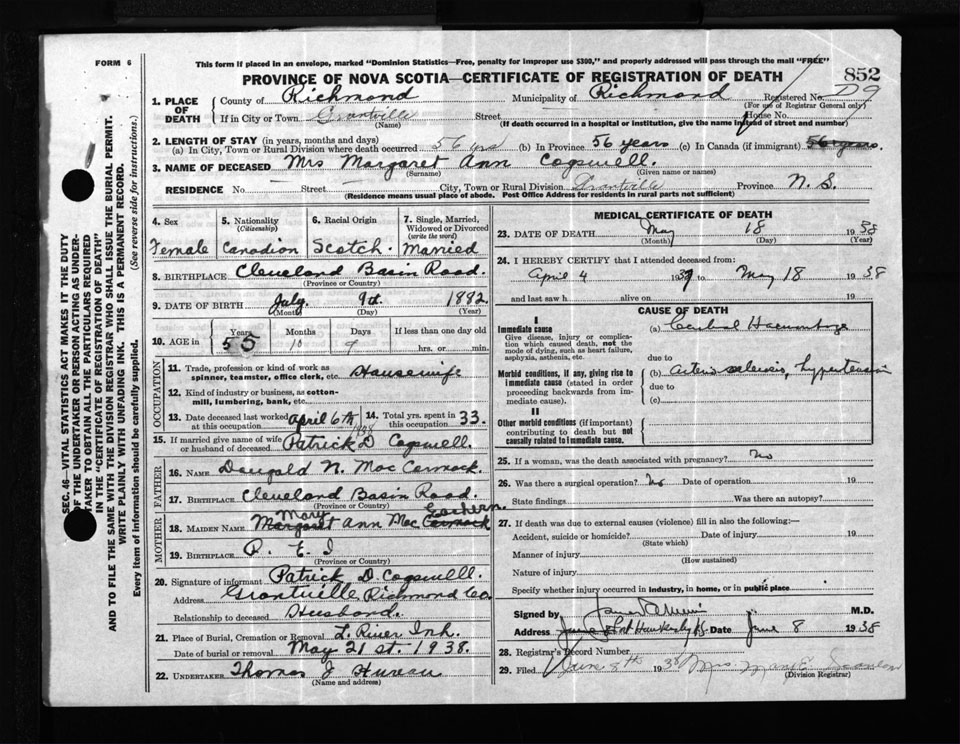 FORM 6
This form if placed in an envelope, marked "Dominion Statistics—Free, penalty for improper use $300," and properly addressed will pass through the mail "FREE"
PROVINCE OF NOVA SCOTIA—CERTIFICATE OF REGISTRATION OF DEATH
852
1. PLACE OF DEATH
County of Richmond Municipality of Richmond Registered No. D9
(For use of Registrar General only)
If in City or Town Grantville Street House No.
(Name) (If death occurred in a hospital or institution, give the name instead of street and number)
2. LENGTH OF STAY (in years, months and days)
(a) In City, Town or Rural Division where death occurred 56 yrs (b) In Province 56 years (c) In Canada (if immigrant) 56 years.
3. NAME OF DECEASED Mrs Margaret Ann Cogswell.
(Surname) (Given name or names)
RESIDENCE No. — Street — City, Town or Rural Division Grantville Province N. S.
(Residence means usual place of abode. Post Office Address for residents in rural parts not sufficient)
4. Sex
Female
5. Nationality
(Citizenship)
Canadian
6. Racial Origin
Scotch.
7. Single, Married, Widowed or Divorced
(write the word)
Married
8. BIRTHPLACE Cleveland Basin Road.
(Province or Country)
9. DATE OF BIRTH July 9th. 1882
(Month) (Day) (Year)
10. AGE in
Years Months Days If less than one day old
55 10 9 hrs. or min.
OCCUPATION
11. Trade, profession or kind of work as spinner, teamster, office clerk, etc. Housewife
12. Kind of industry or business, as cotton-mill, lumbering, bank, etc.
13. Date deceased last worked at this occupation April 6th 1938
14. Total yrs. spent in this occupation 33.
15. If married give name of wife or husband of deceased Patrick D Cogswell.
FATHER
16. NAME Dougald N. Mac Cormack.
17. BIRTHPLACE Cleveland Basin Road.
(Province or Country)
MOTHER
18. MAIDEN NAME Margaret Mary Ann Mac Cormack Eachern.
19. BIRTHPLACE P. E. I
(Province or Country)
20. Signature of informant Patrick D. Cogswell.
Address Grantville Richmond Co.
Relationship to deceased Husband.
21. Place of Burial, Cremation or Removal L. River Inh.
Date of burial or removal May 21 st. 1938.
22. UNDERTAKER Thomas J
(Name and address)
MEDICAL CERTIFICATE OF DEATH
23. DATE OF DEATH May 18 1938
(Month) (Day) (Year)
24. I HEREBY CERTIFY that I attended deceased from:
April 4 1937 to May 18 1938
and last saw h alive on 19
CAUSE OF DEATH
I
Immediate cause
Give disease, injury or complication which caused death, not the mode of dying, such as heart failure, asphyxia, asthenia, etc.
(a) Cerebral Haemorrhage
due to
Morbid conditions, if any, giving rise to immediate cause (stated in order proceeding backwards from immediate cause).
(b) Arterio sclerosis, hypertension
due to
(c)
II
Other morbid conditions (if important) contributing to death but not causally related to immediate cause.
25. If a woman, was the death associated with pregnancy? No
26. Was there a surgical operation? No Date of operation 19
State findings Was there an autopsy?
27. If death was due to external causes (violence) fill in also the following:—
Accident, suicide or homicide? Date of injury 19
(State which)
Manner of injury
(How sustained)
Nature of injury
Specify whether injury occurred in industry, in home, or in public place
Signed by M.D.
Address Port Hawkesbury Date June 8 1938
28. Registrar's Record Number
29. Filed June 8th 1938 Mrs. Mary E. Scanlon
(Division Registrar)
SEC. 46—VITAL STATISTICS ACT MAKES IT THE DUTY
OF THE UNDERTAKER OR PERSON ACTING AS UNDER-
TAKER TO OBTAIN ALL THE PARTICULARS REQUIRED
IN THE "CERTIFICATE OF REGISTRATION OF DEATH"
AND TO FILE THE SAME WITH THE DIVISION REGISTRAR WHO SHALL ISSUE THE BURIAL PERMIT.
WRITE PLAINLY WITH UNFADING INK. THIS IS A PERMANENT RECORD.
Every item of information should be carefully supplied. (See reverse side for instructions.)